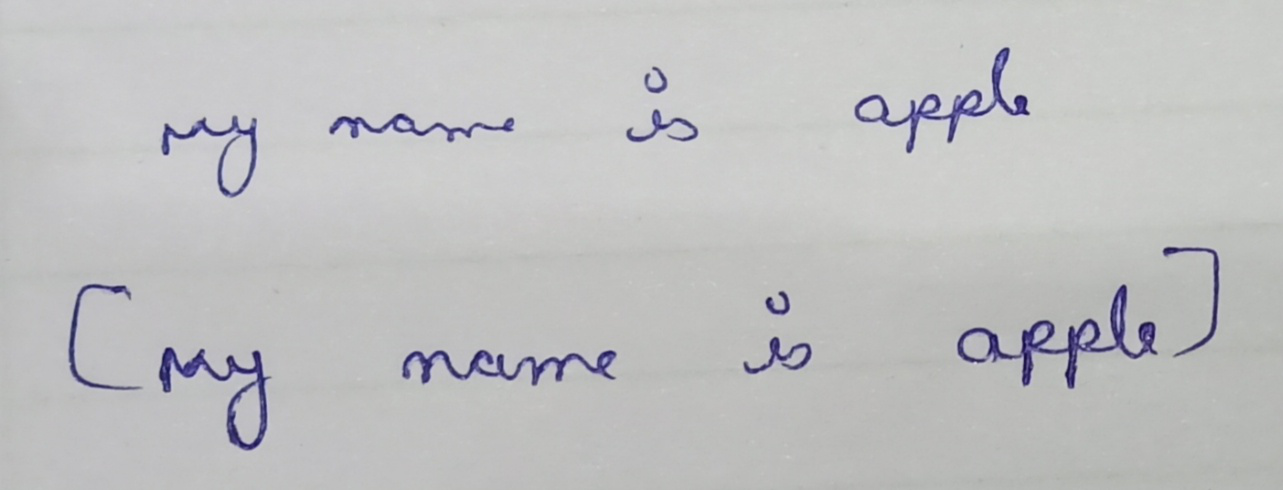 my name is apple
[my name is apple]